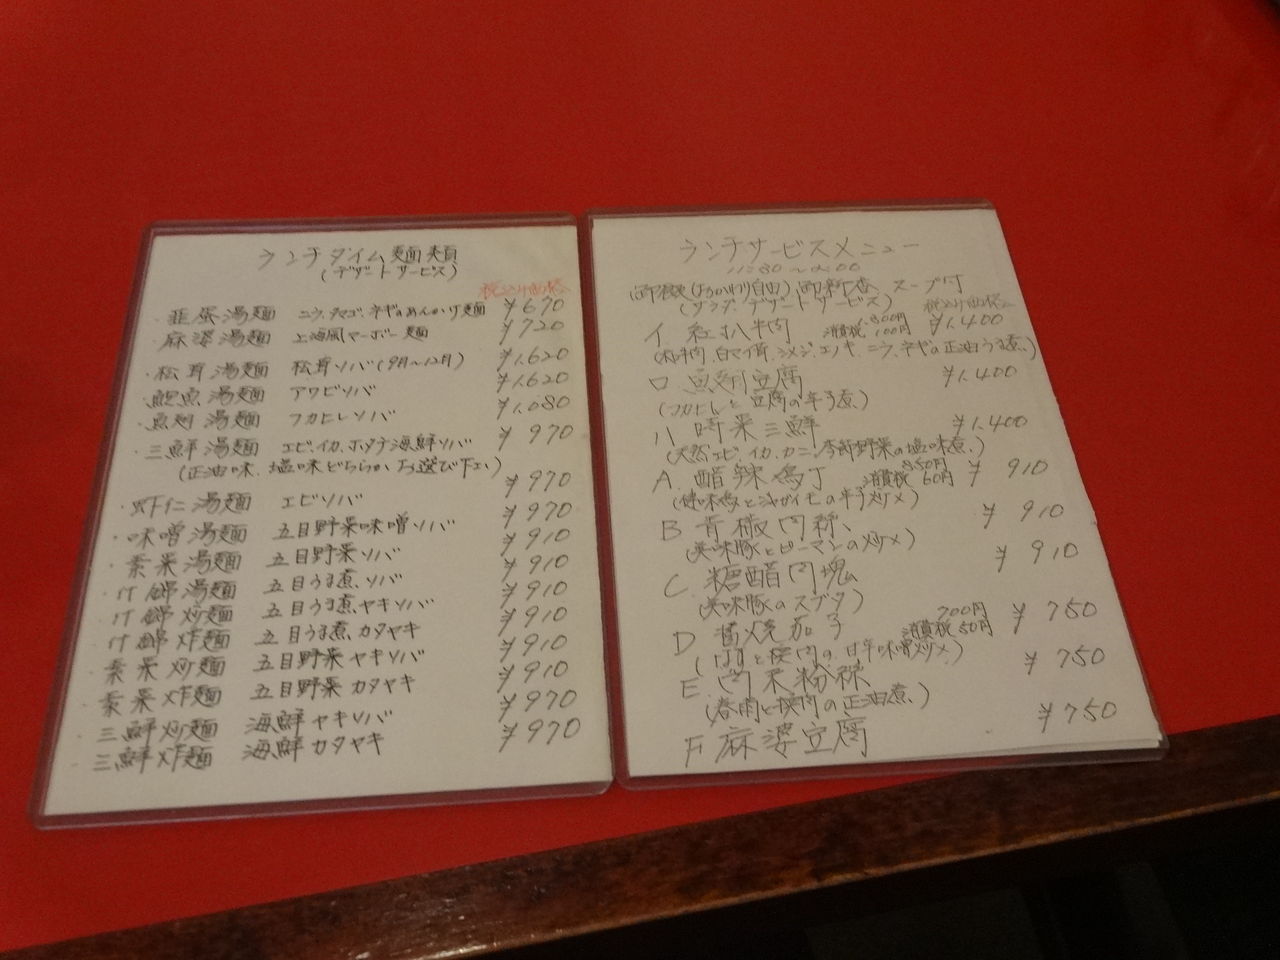 ランチタイム麺類
(デザートサービス)
税込み価格
・韮蛋湯麺 ニラ、タマゴ、ネギのあんかけ麺 ¥670
・麻婆湯麺 上海風マーボー麺 ¥720
・松茸湯麺 松茸ソバ(9月〜12月) ¥1.620
・鮑魚湯麺 アワビソバ ¥1.620
・魚翅湯麺 フカヒレソバ ¥1.080
・三鮮湯麺 エビ、イカ、ホタテ海鮮ソバ ¥970
(正油味、塩味どちらかお選び下さい)
・虾仁湯麺 エビソバ ¥970
・味噌湯麺 五目野菜味噌ソバ ¥970
・素菜湯麺 五目野菜ソバ ¥910
・什錦湯麺 五目うま煮ソバ ¥910
什錦炒麺 五目うま煮ヤキソバ ¥910
什錦炸麺 五目うま煮カタヤキ ¥910
素菜炒麺 五目野菜ヤキソバ ¥910
素菜炸麺 五目野菜カタヤキ ¥910
三鮮炒麺 海鮮ヤキソバ ¥970
三鮮炸麺 海鮮カタヤキ ¥970
ランチサービスメニュー
11:30〜2:00
御飯(おかわり自由) 御新香 スープ付
(サラダ・デザートサービス) 税込み価格
イ. 紅扒牛肉 1.300円 消費税100円 ¥1.400
(和牛肉、白マイ茸、シメジ、エノキ、ニラ、ネギの正油うま煮)
ロ 魚翅豆腐 ¥1.400
(フカヒレと豆腐の辛子煮)
ハ 時菜三鮮 ¥1.400
(天然エビ、イカ、カニ、季節野菜の塩味煮)
A. 醋辣鶏丁 850円 消費税60円 ¥910
(健味鶏とジャガイモの辛子炒メ)
B 青椒肉絲 ¥910
(美味豚とピーマンの炒メ)
C. 糖醋肉塊 ¥910
(美味豚のスブタ)
D 醤焼茄子 700円 消費税50円 ¥750
(ナスと挽肉の甘辛味噌炒メ)
E. 肉末粉絲 ¥750
(春雨と挽肉の正油煮)
F 麻婆豆腐 ¥750